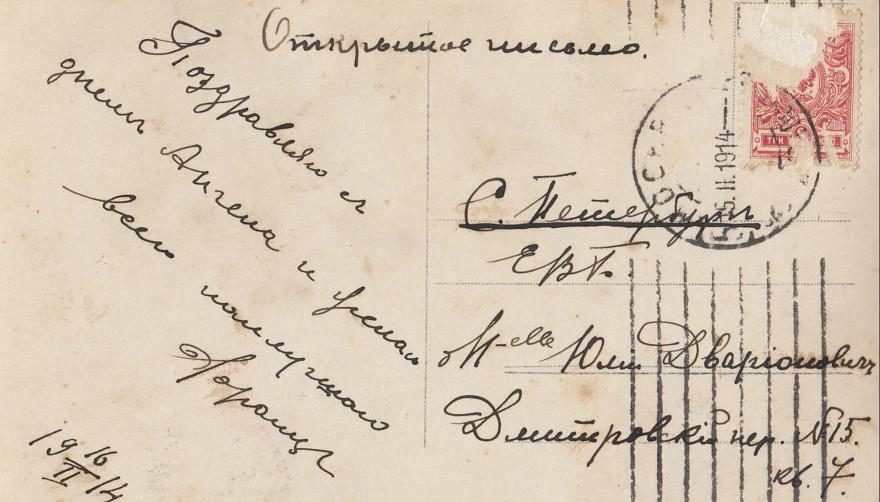 Открытое письмо.
Поздравляю съ
днемъ Ангела и желаю
всего наилучшаго
1916/II 14
С. Петербургъ
ЕВБ.
М-elle Юлии Дваріоновичъ
Дмитровскій пер. N 15.
кв. 7.
5.II.1914
ТРИ